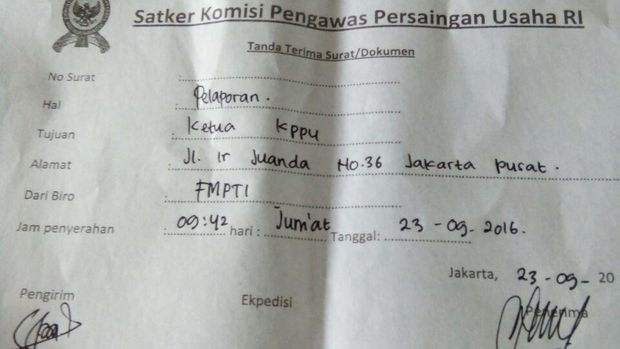 Satker Komisi Pengawas Persaingan Usaha RI
Tanda Terima Surat/Dokumen
No Surat :
Hal : Pelaporan.
Tujuan : Ketua KPPU
Alamat : Jl. Ir Juanda No.36 Jakarta Pusat.
Dari Biro : FMPTI
Jam penyerahan : 09:42 hari : Jum'at Tanggal: 23-09-2016.
Jakarta, 23-09-20
Pengirim Ekpedisi Penerima